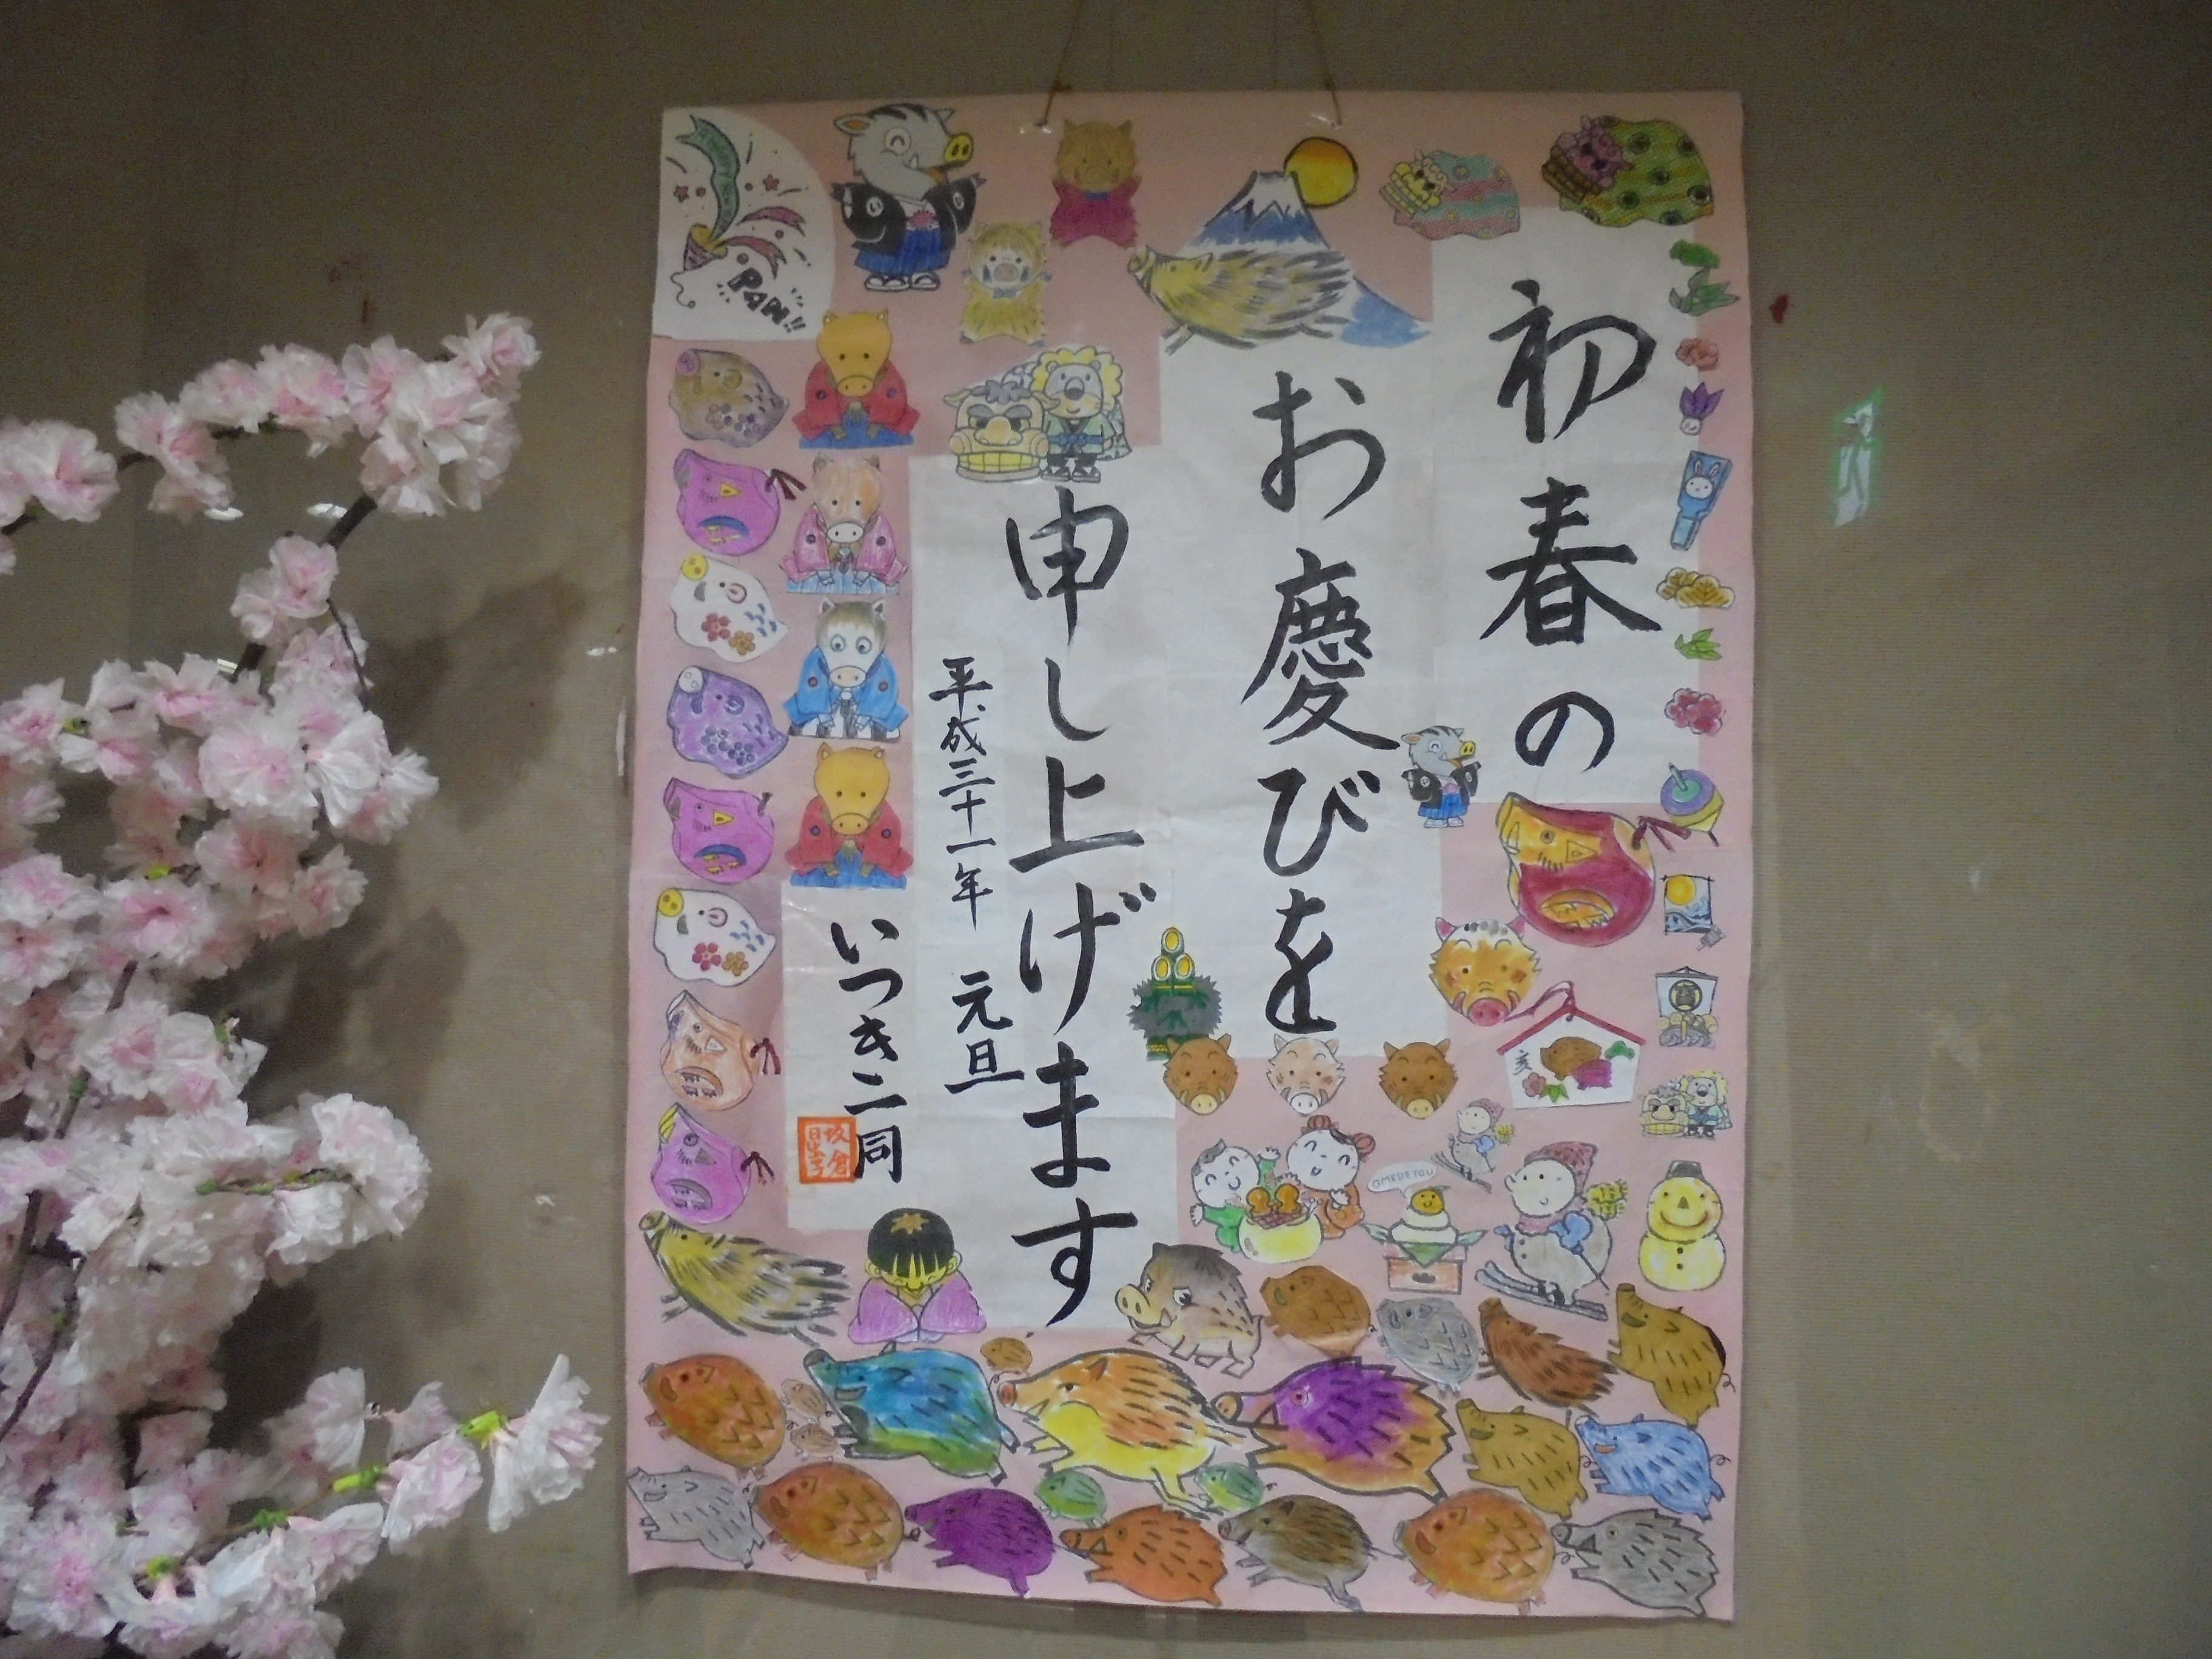 初春の
お慶びを
申し上げます
平成三十一年 元旦
いつき二同
PAN!!
OMEDETOU
亥